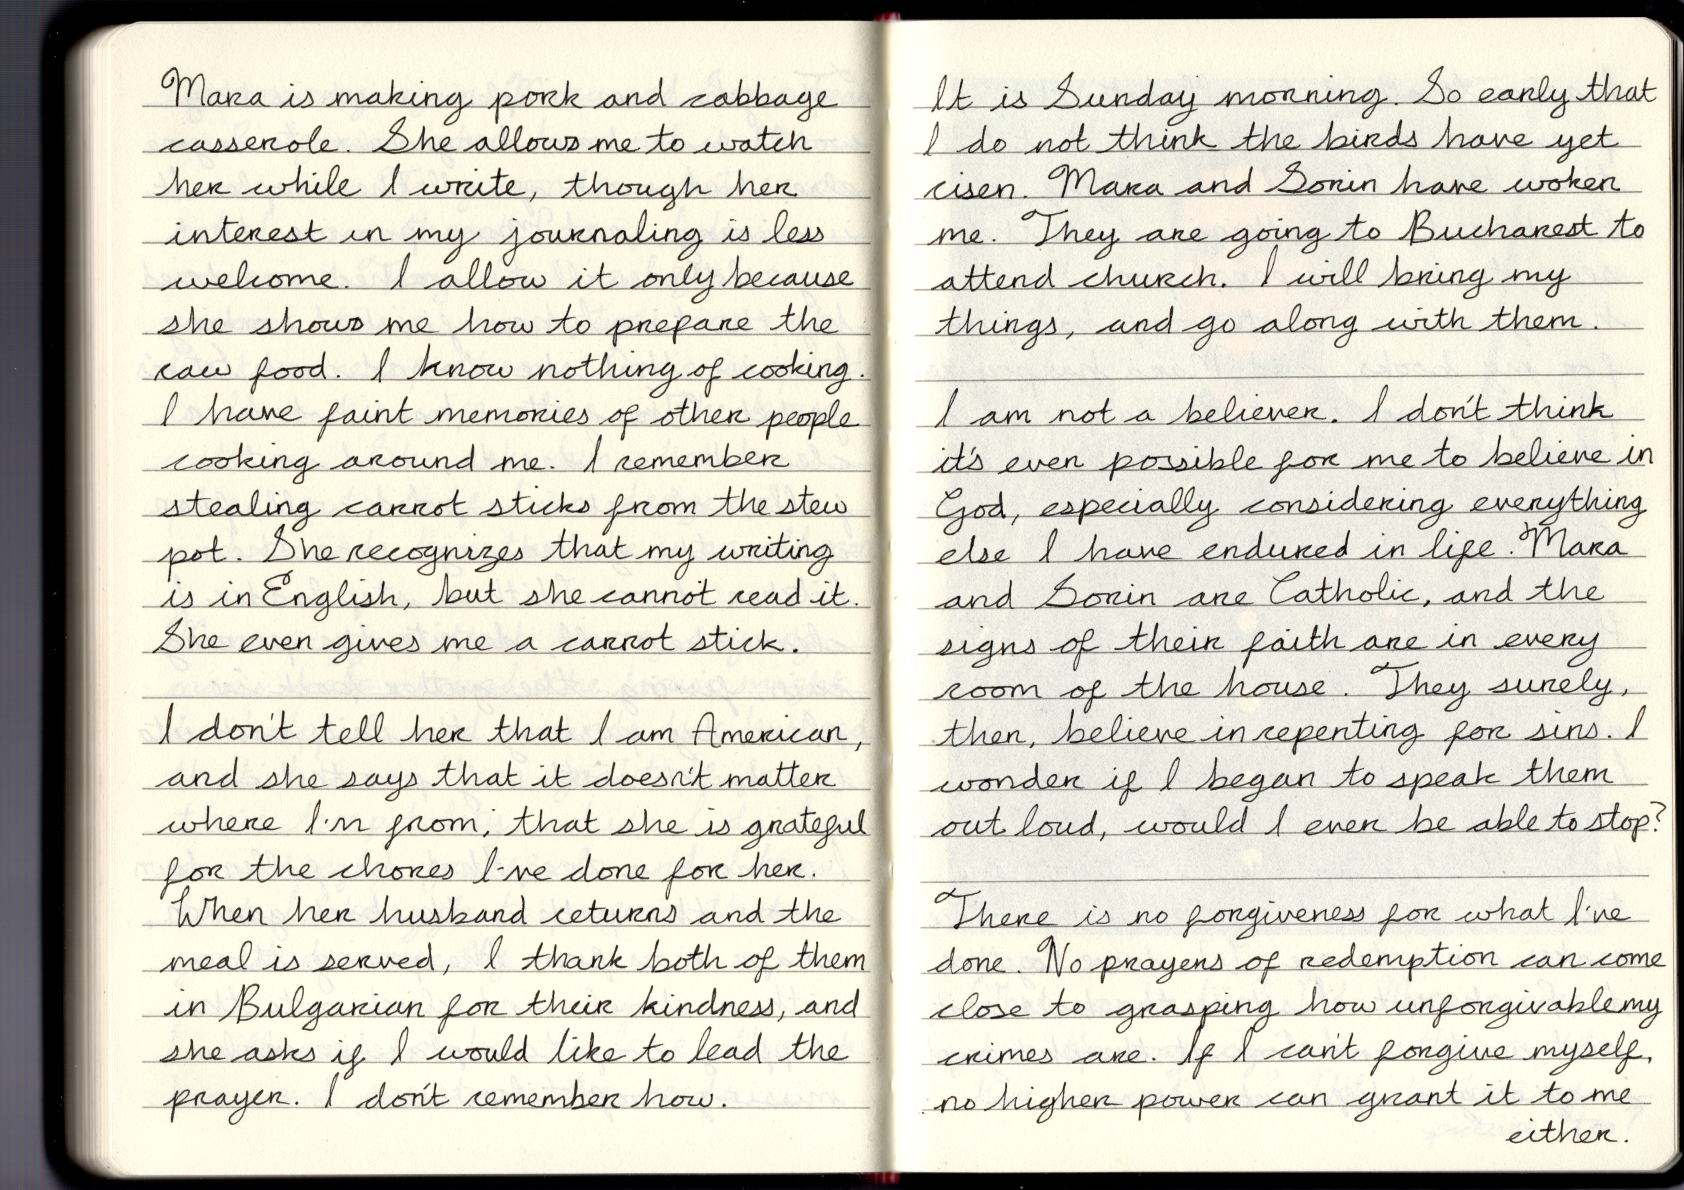 Mara is making pork and cabbage
casserole. She allows me to watch
her while I write, though her
interest in my journaling is less
welcome. I allow it only because
she shows me how to prepare the
raw food. I know nothing of cooking.
I have faint memories of other people
cooking around me. I remember
stealing carrot sticks from the stew
pot. She recognizes that my writing
is in English, but she cannot read it.
She even gives me a carrot stick.
I don't tell her that I am American,
and she says that it doesn't matter
where I'm from, that she is grateful
for the chores I've done for her.
When her husband returns and the
meal is served, I thank both of them
in Bulgarian for their kindness, and
she asks if I would like to lead the
prayer. I don't remember how.
It is Sunday morning. So early that
I do not think the birds have yet
risen. Mara and Sorin have woken
me. They are going to Bucharest to
attend church. I will bring my
things, and go along with them.
I am not a believer. I don't think
it's even possible for me to believe in
God, especially considering everything
else I have endured in life. Mara
and Sorin are Catholic, and the
signs of their faith are in every
room of the house. They surely,
then, believe in repenting for sins. I
wonder if I began to speak them
out loud, would I ever be able to stop?
There is no forgiveness for what I've
done. No prayers of redemption can come
close to grasping how unforgivable my
crimes are. If I can't forgive myself,
no higher power can grant it to me
either.